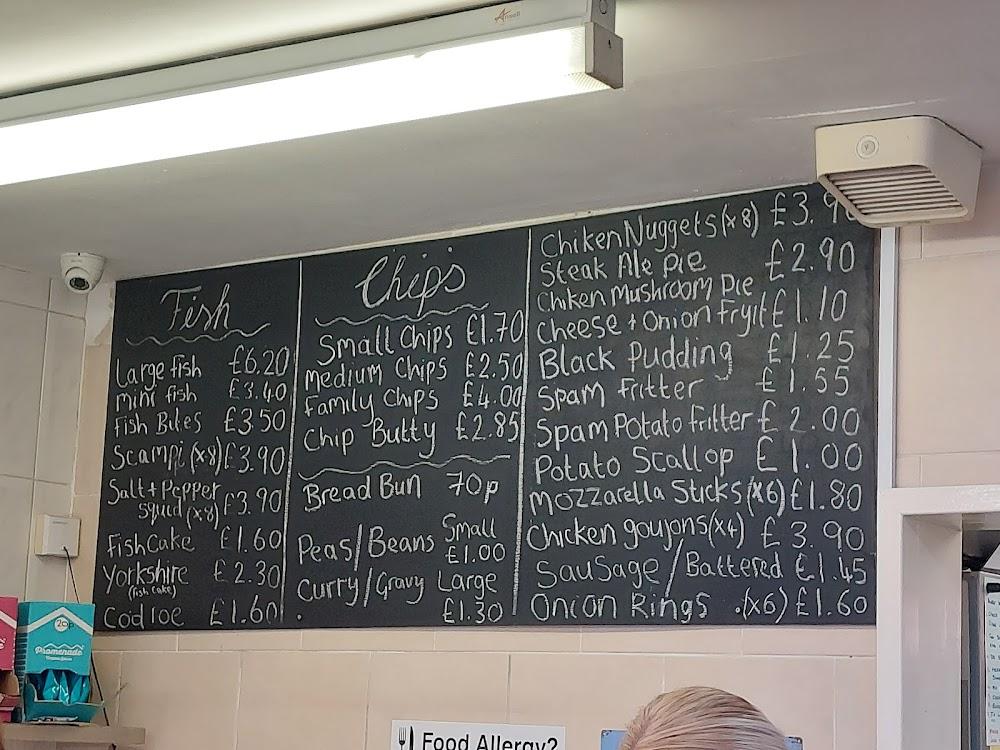 Fish
Large fish £6.20
mini fish £3.40
Fish Bites £3.50
Scampi (x8) £3.90
Salt + Pepper
squid (x8) £3.90
Fish Cake £1.60
Yorkshire £2.30
(fish cake)
Cod roe £1.60
Chip's
Small Chips £1.70
Medium Chips £2.50
Family Chips £4.00
Chip Butty £2.85
Bread Bun 70p
Peas/Beans Small
£1.00
Curry/Gravy Large
£1.30
Chiken Nuggets (x8) £3.90
Steak Ale Pie £2.90
Chiken Mushroom Pie
Cheese + Onion Fryit £1.10
Black Pudding £1.25
Spam Fritter £1.55
Spam Potato Fritter £2.00
Potato Scallop £1.00
Mozzarella Sticks (x6) £1.80
Chicken goujons (x4) £3.90
Sausage/Battered £1.45
Onion Rings .(x6) £1.60
20p
Promenade
Food Allergy?